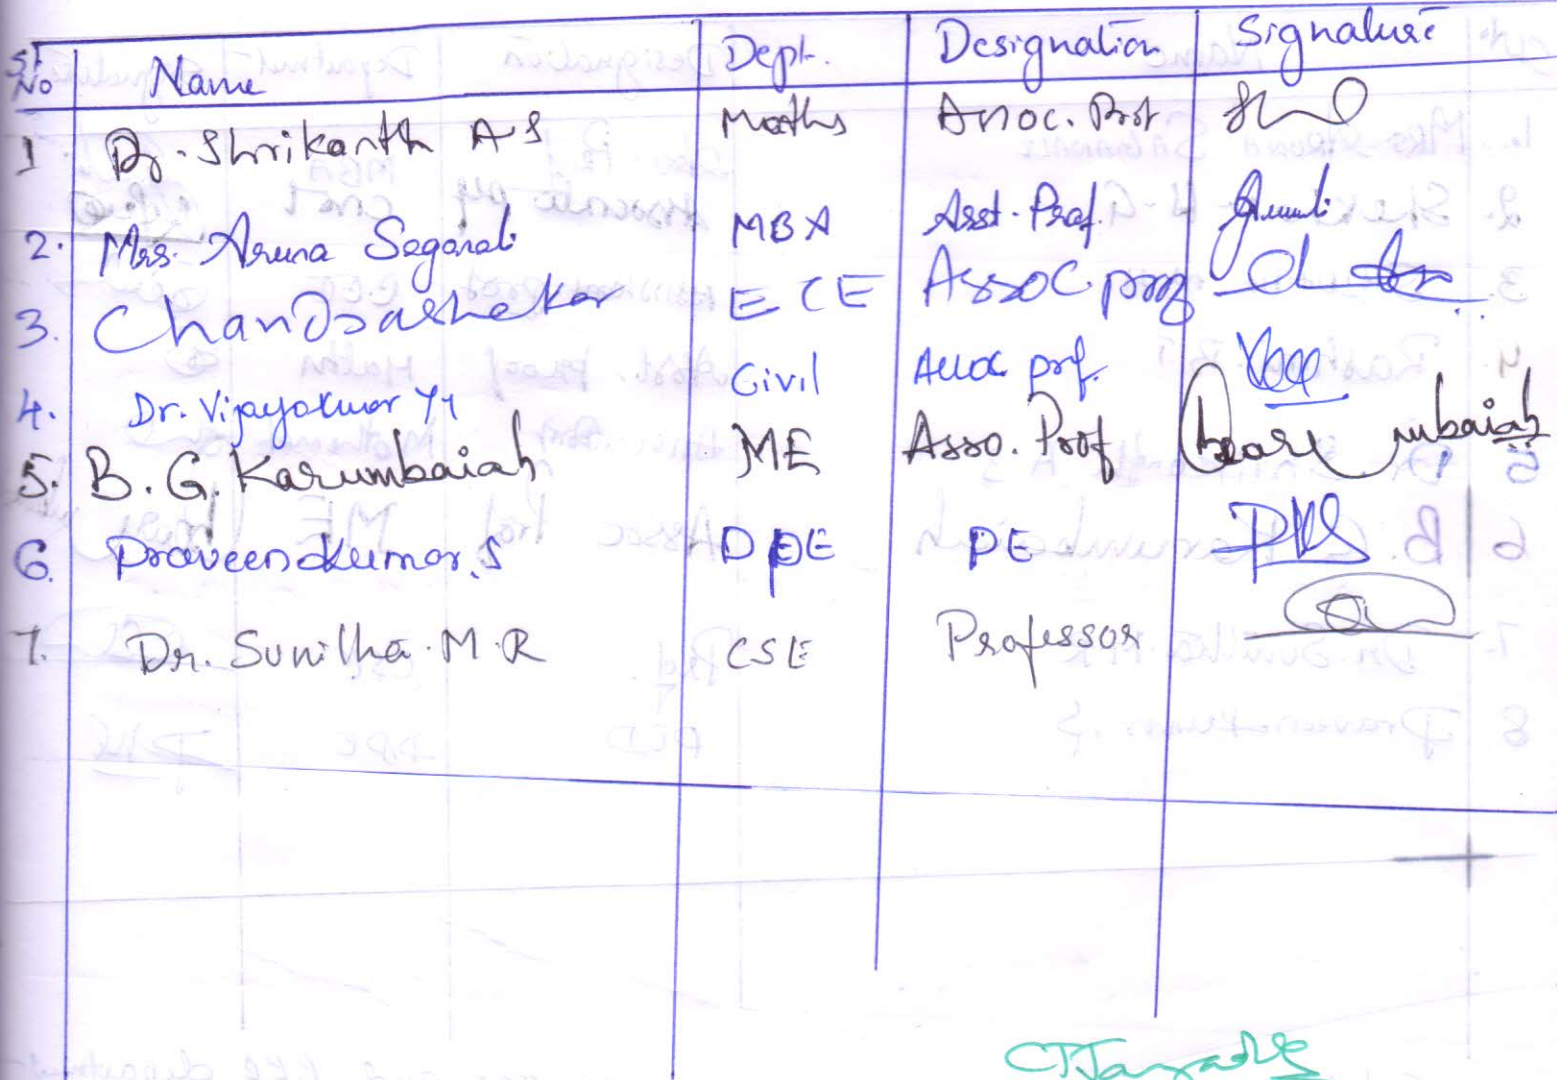 Sl No Name Dept. Designation Signature
1 Dr. Shrikanth A S Maths Assoc. Prof
2. Mrs. Aruna MBA Asst. Prof.
3. Chandrashekar ECE Assoc. prof
4. Dr. Vijayakumar Civil Assoc prof.
5. B. G. Karumbaiah ME Asso. Prof
6. Praveenkumar.S DPE PE
7. Dr. Sunitha. M. R CSE Professor